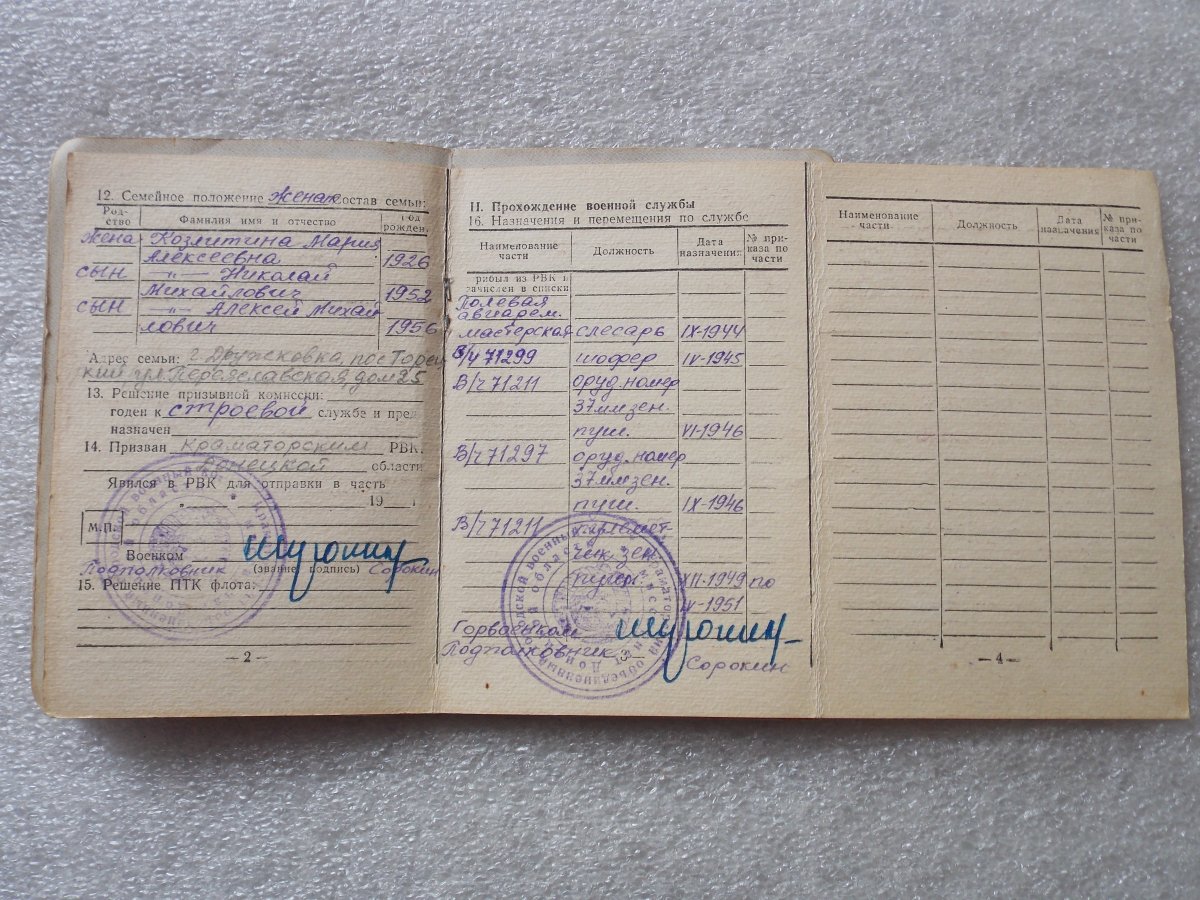 12. Семейное положение женат состав семьи:
Род-
ство
Фамилия имя и отчество
Год
рожден.
жена Козлитина Мария
Алексеевна 1926
сын —〃— Николай
Михайлович 1952
сын —〃— Алексей Михай
лович 1956
Адрес семьи: г. Дружковка, пос Торец
кий ул. Переяславская, дом 25
13. Решение призывной комиссии:
годен к строевой службе и пред-
назначен
14. Призван Краматорским РВК,
Донецкой области
Явился в РВК для отправки в часть
19 г.
М.П.
Военком
Подполковник (звание, подпись) Сорокин
15. Решение ПТК флота
— 2 —
II. Прохождение военной службы
16. Назначения и перемещения по службе
Наименование
части
Должность
Дата
назначения
№ при-
каза по
части
Прибыл из РВК и
зачислен в списки
Полевая
авиарем.
мастерская слесарь IX-1944
В/ч 71299 шофер IV-1945
В/ч 71211 оруд. номер
37 мм зен.
пуш. VI-1946
В/ч 71297 оруд. номер
37 мм зен.
пуш. IX-1946
В/ч 71211
зен.
XII-1949 по
IV-1951
Горвоенком
Подполковник Сорокин
3
Наименование
части
Должность
Дата
назначения
№ при-
каза по
части
— 4 —